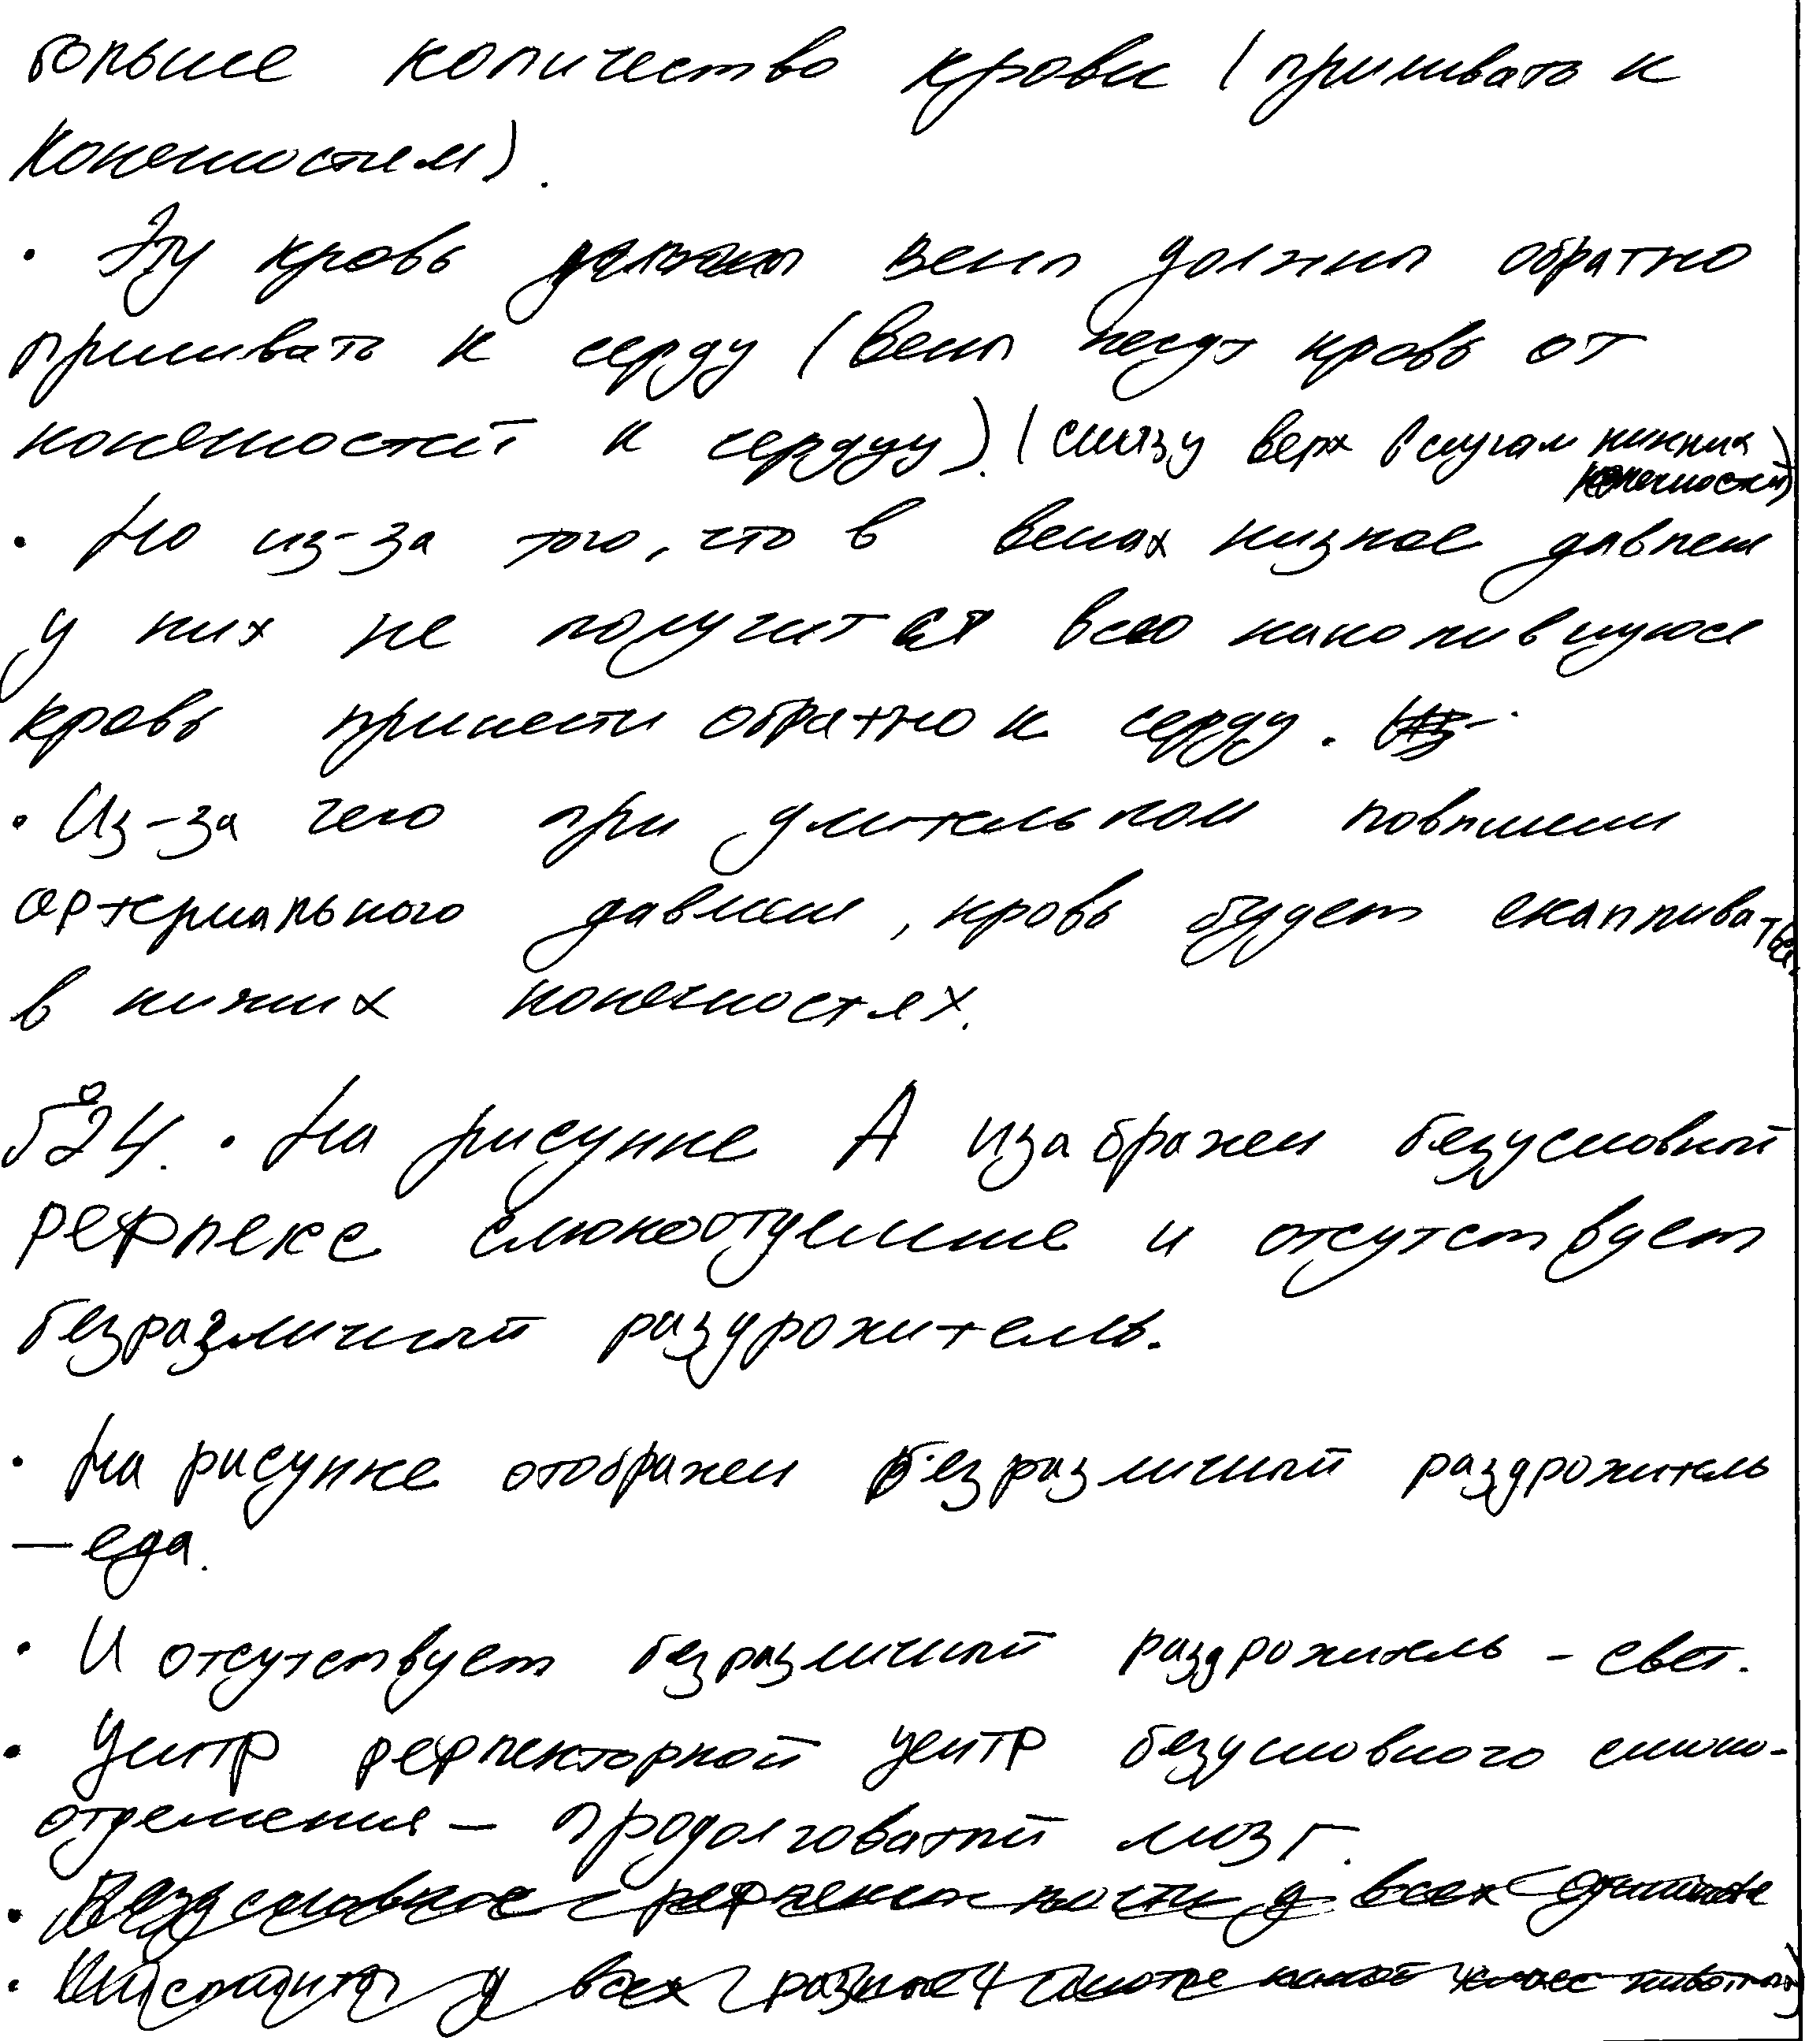 больше количество крови (приливать к
конечностям).
· Эту кровь должны вены должны обратно
приливать к серду (вены несут кровь от
конечностей к сердцу). (снизу верх в случам нижних
конечностей)
· Но из-за того, что в венах низкое давлени
у них не получится всю накопившуюся
кровь принести обратно к серду. Из-
· Из-за чего при длительном повышени
артериального давлени, кровь будет скапливаться
в нижних конечностях.
№24. · На рисунке А изабражен безусловной
рефлекс слюноотделение и отсутствует
безразличный раздрожитель.
· На рисунке отображен безразличный раздрожитель
— еда.
· И отсутствует безразличный раздрожитель - свет.
· Центр рефлекторной центр безусловного слюно-
отделения — продолговатый мозг.
· Безусловные рефлексы почти у всех
· Инстинкты у всех разные ( какой класс животных)